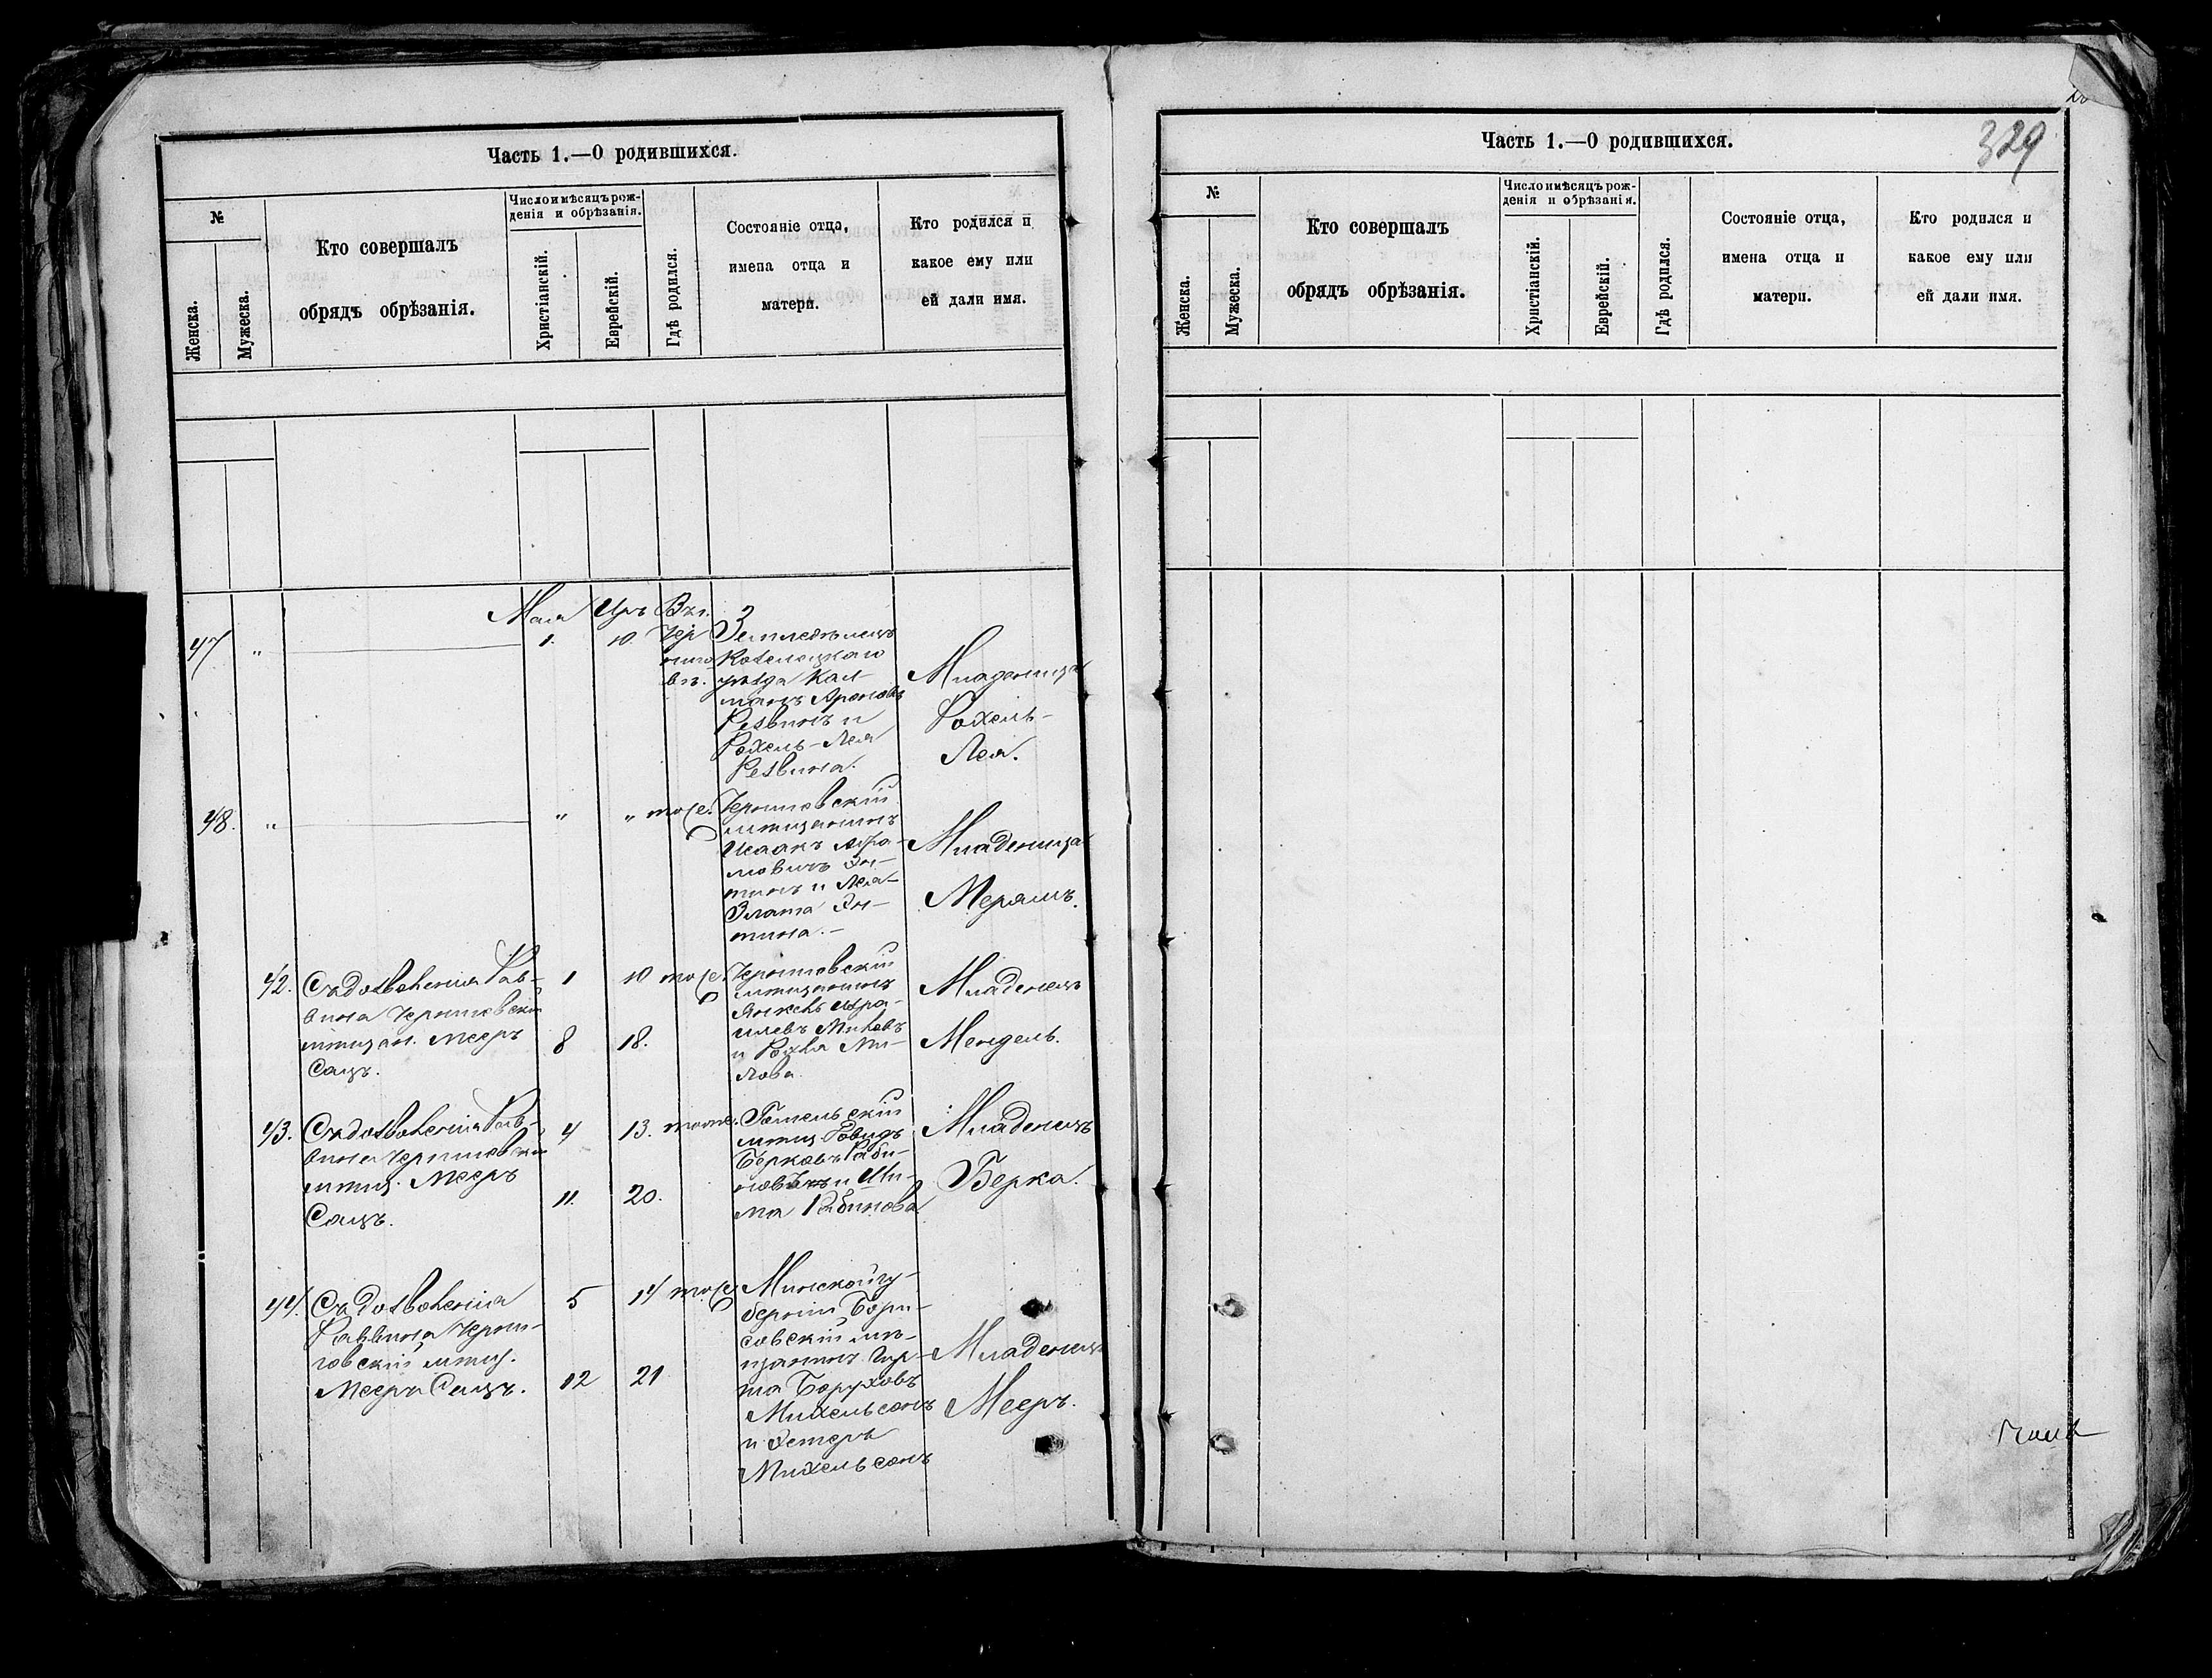 Часть 1.—О родившихся.
№
Женска.
Мужеска.
Кто совершалъ
обрядъ обрѣзанія.
Число и мѣсяцъ рож-
денія и обрѣзанія.
Христіанскій.
Еврейскій.
Гдѣ родился.
Состояніе отца,
имена отца и
матери.
Кто родился и
какое ему или
ей дали имя.
Мая Иръ Въ г.
47 „ 1. 10. Чер
ниго
вѣ.
Земледѣлецъ
Козелецкаго
уѣзда Кал-
манъ Ароновъ
Резвинъ и
Рохель-Лея
Резвина.
Младеница
Рохель-
Лея.
48. „ „ „ тоже.
Черниговскій
мѣщанинъ
Исаакъ Абра-
мовичъ Эн-
тинъ и Лея-
Злата Эн-
тина.—
Младеница
Мерямъ.
42. Съ дозволенія Рав-
вина Черниговскій
мѣщан. Мееръ
Сацъ.
1 10 тоже.
8 18.
Черниговскій
мѣщанинъ
Янкель Изра-
илевъ
и
Младенецъ
Мендель.
43. Съ дозволенія Рав-
вина Черниговскій
мѣщ. Мееръ
Сацъ.
4 13. тоже.
11. 20.
Гомельскій
мѣщ. Довидъ
Берковъ Раби-
новъ и Ши-
ма Рабинова
Младенецъ
Берка.
44. Съ дозволенія
Раввина Черни-
говскій мѣщ.
Мееръ Сацъ.
5 14 тоже.
12 21
Минской гу-
берніи Бори-
совскій мѣ-
щанинъ
Боруховъ
Михельсонъ
и Эстеръ
Михельсонъ
Младенецъ
Мееръ.
329
Часть 1.—О родившихся.
№
Женска.
Мужеска.
Кто совершалъ
обрядъ обрѣзанія.
Число и мѣсяцъ рож-
денія и обрѣзанія.
Христіанскій.
Еврейскій.
Гдѣ родился.
Состояніе отца,
имена отца и
матери.
Кто родился и
какое ему или
ей дали имя.